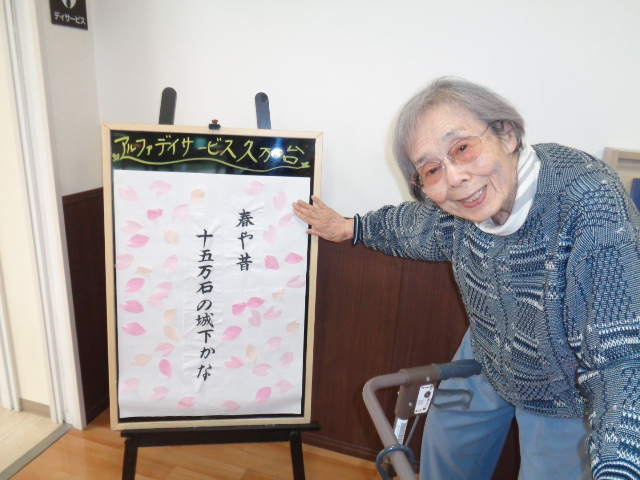 デイサービス
アルファデイサービス久万ノ台
春や昔
十五万石の城下かな